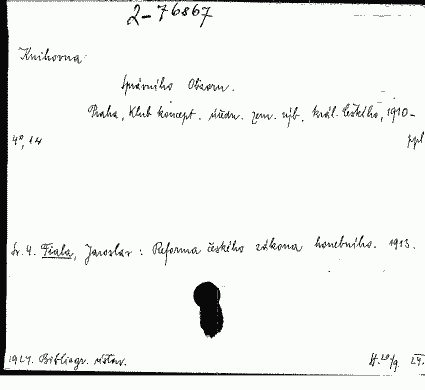 2-76867
Knihovna
Správního Obzoru.
Praha, Klub koncept. úředn. zem. výb. král. českého, 1910-
4°, 14 ppl
Sv. 4. Fiala, Jaroslav: Reforma českého zákona honebního. 1913.
1924. Bibliogr. ústav. 24.